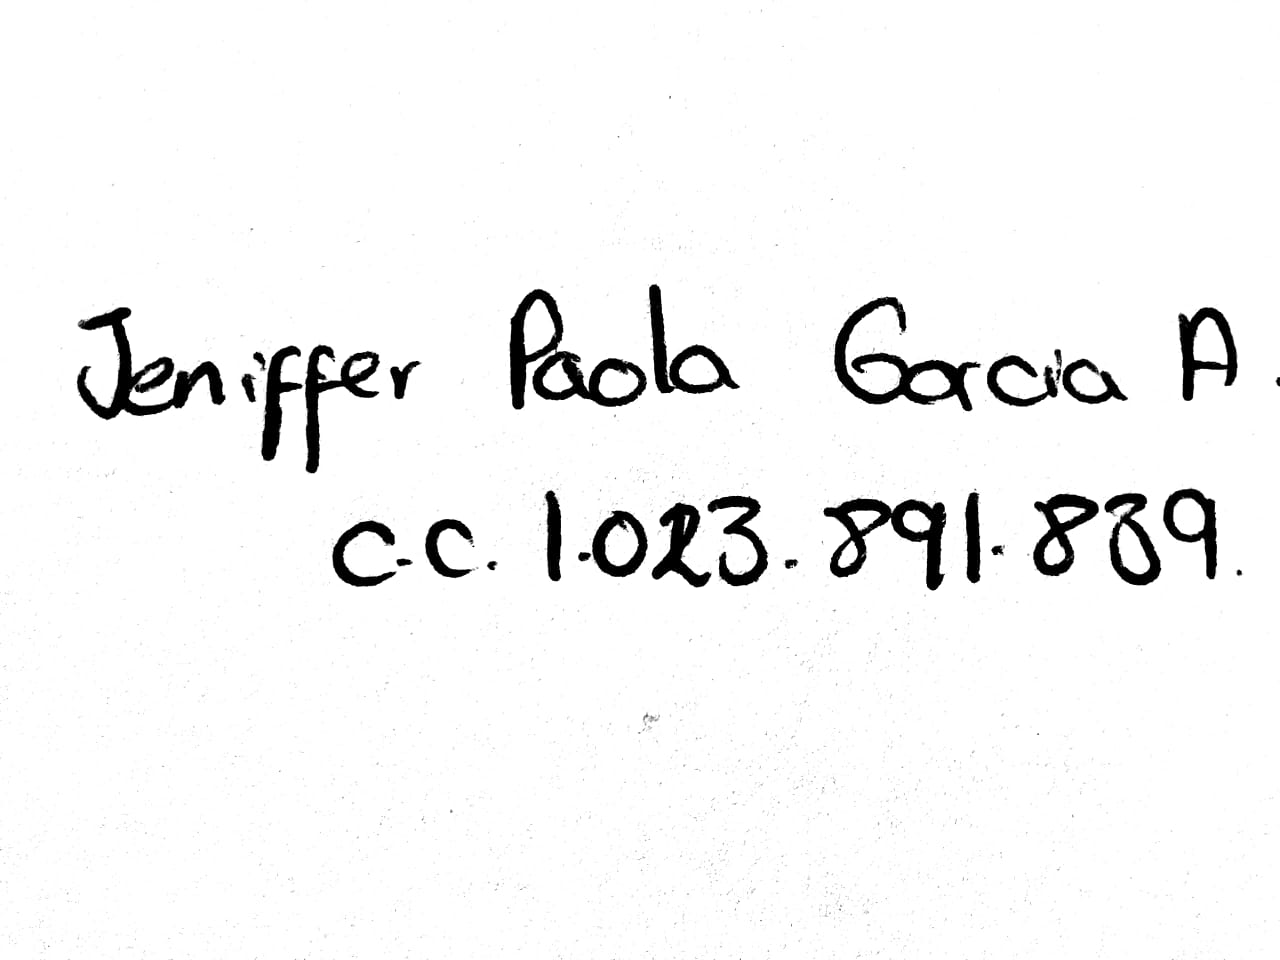 Jeniffer Paola Garcia A.
C.C. 1.023.891.839.